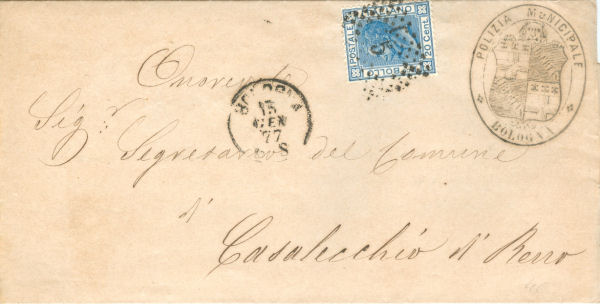 POLIZIA MUNICIPALE
BOLOGNA
POSTALE ITALIANO
BOLLO 20 Cent.
BOLOGNA
15
GEN
77
8 S
Onorevole
Sigr.
Segretario del Comune
d'
Casalecchio d' Reno